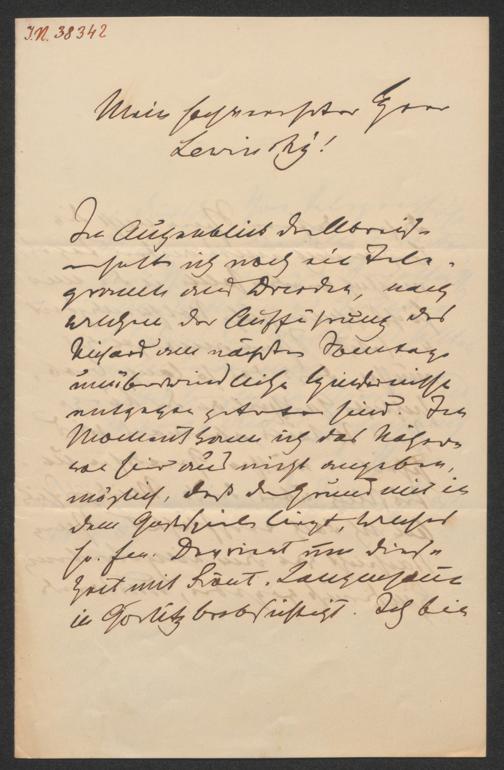 I.N. 38342
Mein sehr verehrter Herr
Lewinsky!
Im Augenblick der Abreise
erhalte ich noch ein Tele-
gramm aus Dresden, nach
welchem der Aufführung des
Richard am nächsten Sonntage
unüberwindliche Hindernisse
entgegen getreten sind. Im
Moment kann ich das Nähere
von hier aus nicht angeben,
möglich, daß der Grund mit in
dem Gastspiele liegt, welches
Devrient um diese
Zeit mit Frl. Langenhaun
in Görlitz beabsichtigt. Ich bin